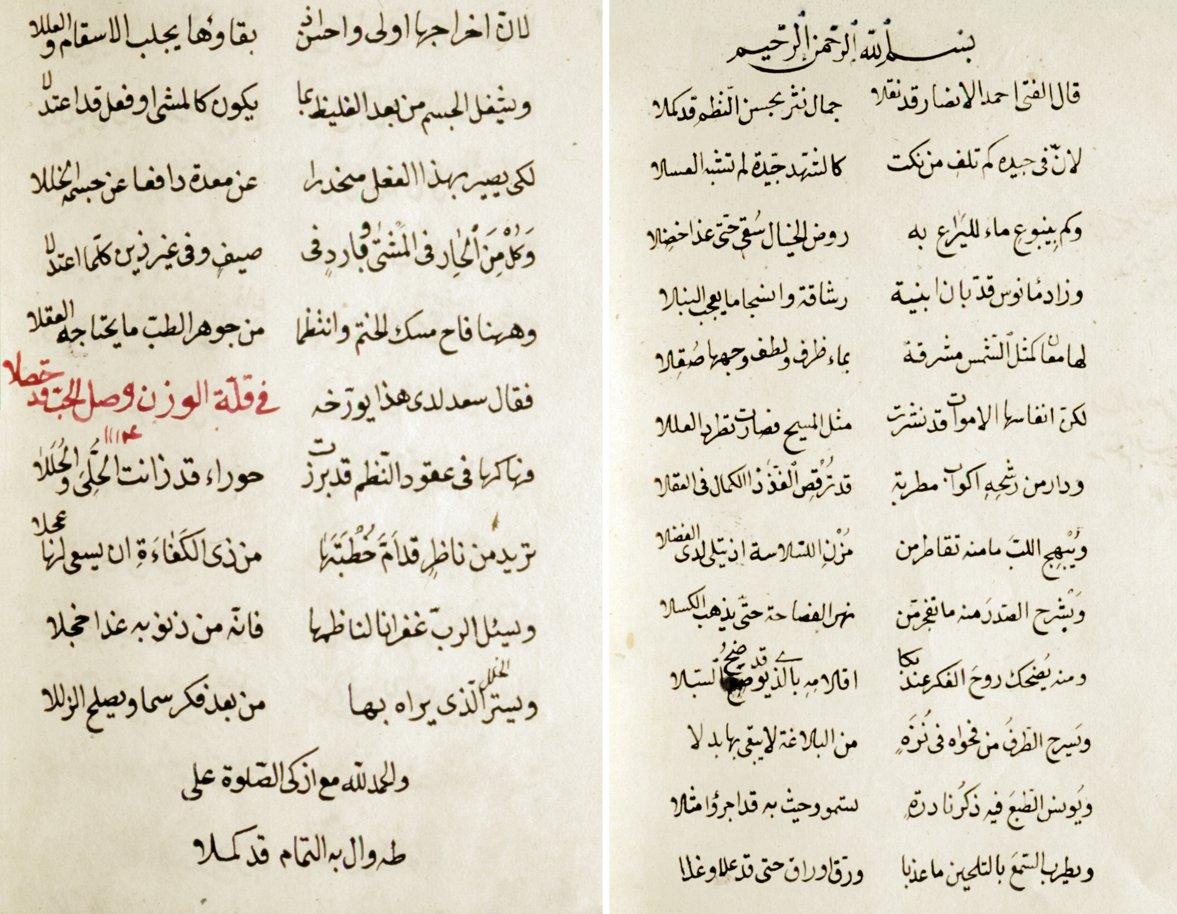 بسم الله الرحمن الرحيم
قال الفتى احمد الانصار قد نقلا جمال نثر بحسن النظم قد كملا
لان في جيده كم تلف من نكت كالشهد جيدة لم تشبه العسلا
وكم بينبوع ماء لليراع به روض الخيال سقي حتى غذا خضلا
وزاد مانوس قد بان ابنية رشاقة وانسجاما يعجب النبلا
لها معان كمثل الشمس مشرقة بماء ظرف ولطف وجهها صقلا
لكن انفاسها الاموات قد نشرت مثل المسيح فصارت تطرد العللا
ودار من رشحه اكواب مطربة قد ترقص الفذ ذا الكمال في العقلا
ويبهج اللب ما منه تقاطر من مزن السلاسة ان يتلى لدى الفضلا
ويشرح الصدر منه ما تفجر من نهر الفصاحة حتى يذهب الكسلا
ومنه يضحك روح الفكر عند بكا اقلامه بالذي قد يوضح السبلا
ويسرح الطرف من فحواه في نزه من البلاغة لا يبقى بها بدلا
ويونس الطبع فيه ذكر نادرة سمو وحيث به قد اجرؤا مثلا
ويطرب السمع بالتلحين ما عذبا ورق اوراق حتى قد علا وغلا
لان اخراجها اولى واحسن اذ بقاوها يجلب الاسقام والعللا
ويثفل الجسم من بعد الغليظ بما يكون كالمشى او فعل قد اعتدلا
لكي يصير بهذا الفعل منحدرا عن معدة دافعا عن جسمه الخللا
وَكُلْ مِنَ ٱلحار في المشتى وبارد في صيف وفي غير ذين كلما اعتدلا
وههنا فاح مسك الختم وانتظما من جوهر الطب ما يحتاجه العقلا
فقال سعد لدى هذا يورخه في قلة الوزن وصل الحب قد حصلا
١١٢٤
فهاكها في عقود النظم قد برزت حوراء قد زانت الحُلَى والحُلَلا
تريد من ناظر قد ام خطبتها من ذي الكفاءة ان يسعى لها عجلا
ويسئل الرب غفرانا لناظمها فانه من ذنوبه غدا خجلا
ويستر الخلل الذي يراه بها من بعد فكر سما ويصلح الزللا
والحمد لله مع ازكى الصلوة على
طه وال به التمام قد كملا